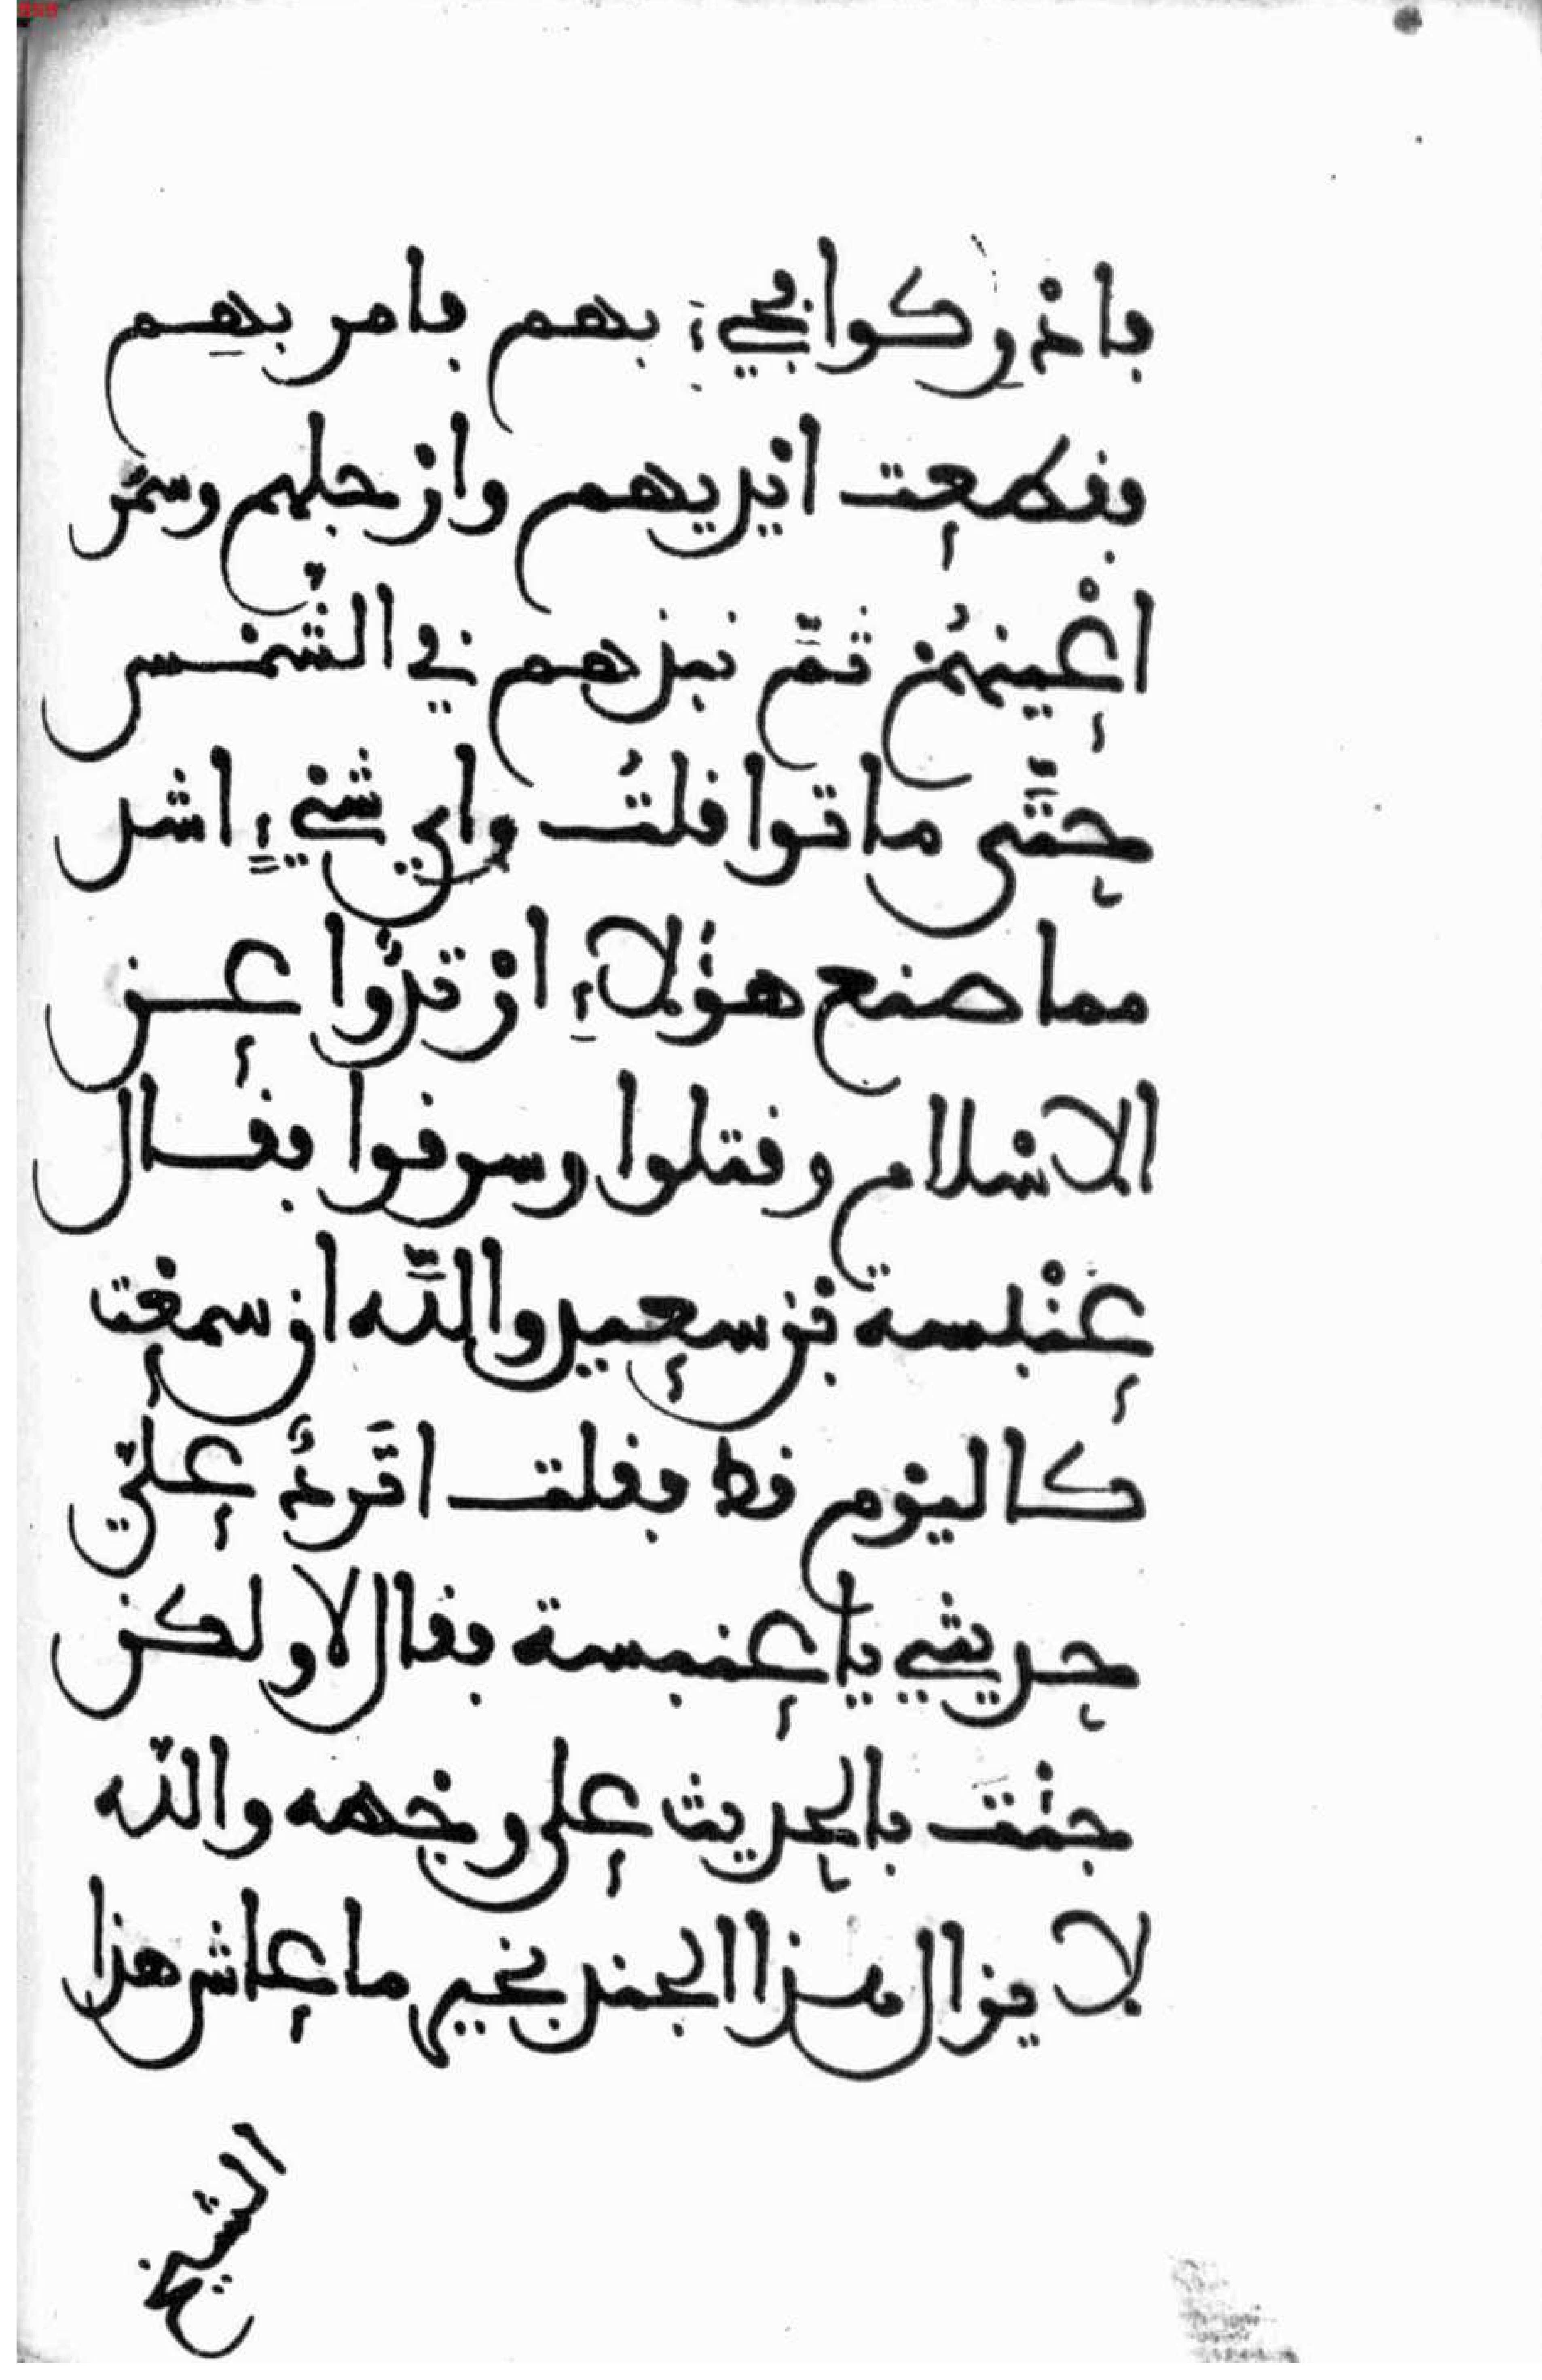 فأدركوا فجيء بهم فأمر بهم
فقطعت ايديهم وارجلهم وسمر
اعينهم ثمّ نبذهم في الشمس
حتَّى ماتوا قلتُ واي شيءٍ اشد
مما صنع هؤلاءِ ارتدّوا عن
الاسلام وقتلوا وسرقوا فقال
عنْبسة بن سعيد والله ان سمعت
كاليوم قط فقلت اتَردُّ عليّ
حديثي يا عنبسة فقال لا ولكن
جئت بالحديث على وجهه والله
لا يزال هذا الجند بخير ما عاش هذا
الشيخ